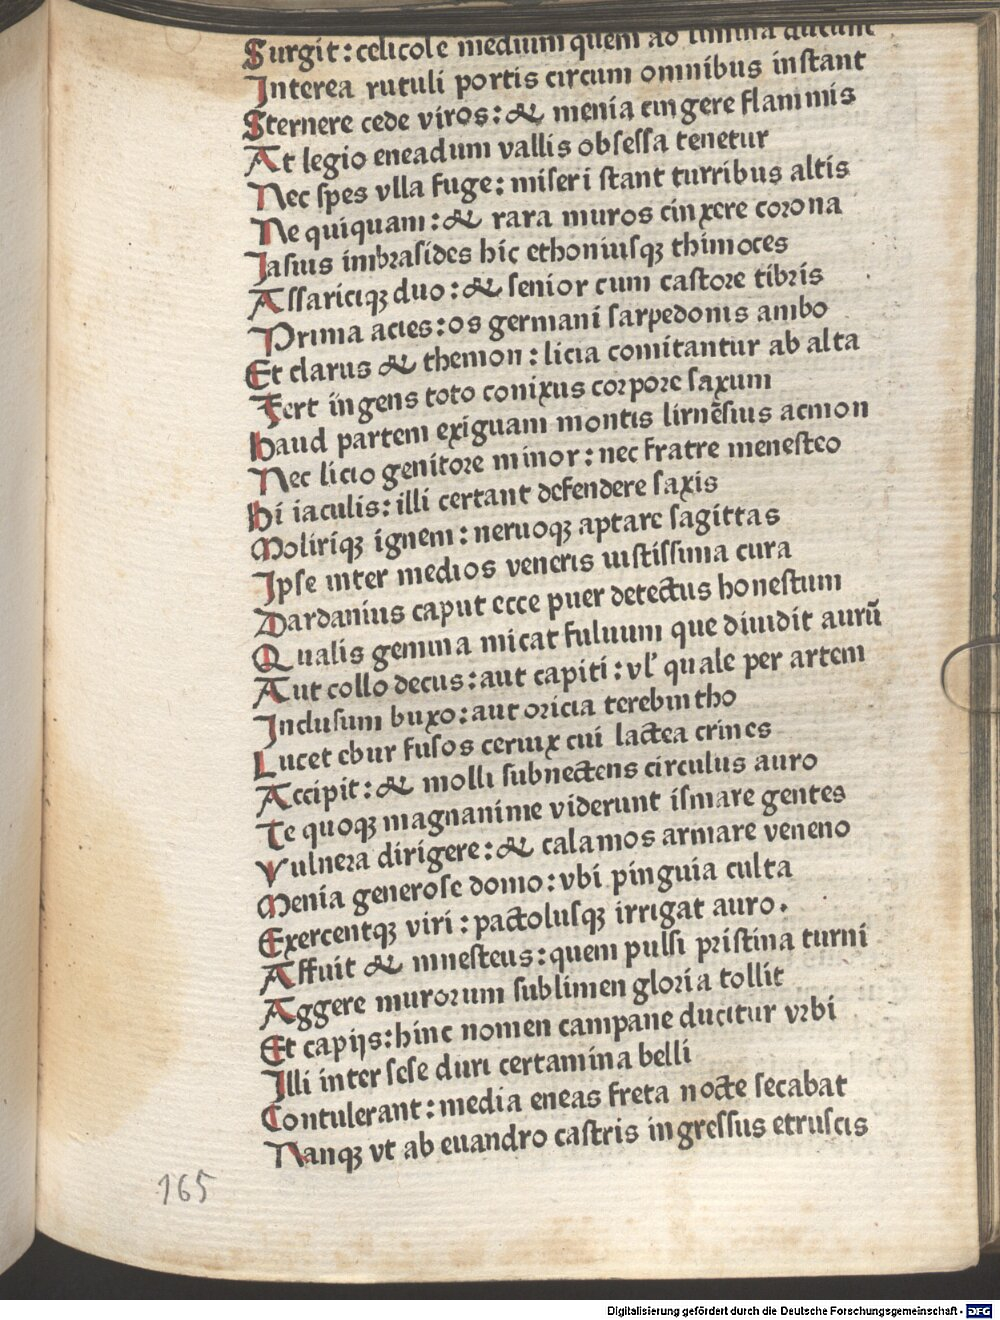 Surgit: celicole medium quem ad limina ducunt
Interea rutuli portis circum omnibus instant
Sternere cede viros: & menia cingere flammis
At legio eneadum vallis obsessa tenetur
Nec spes vlla fuge: miseri stant turribus altis
Ne quiquam: & rara muros cinxere corona
Iasius imbrasides hic ethoniusqꝫ thimoces
Assariciqꝫ duo: & senior cum castore tibris
Prima acies: os germani sarpedonis ambo
Et clarus & themon: licia comitantur ab alta
Fert ingens toto conixus corpore saxum
haud partem exiguam montis lirnēsius acmon
Nec licio genitore minor: nec fratre menesteo
hi iaculis: illi certant defendere saxis
Moliriqꝫ ignem: neruoqꝫ aptare sagittas
Ipse inter medios veneris iustissima cura
Dardanius caput ecce puer detectus honestum
Qualis gemma micat fuluum que diuidit aurū
Aut collo decus: aut capiti: vl' quale per artem
Inclusum buxo: aut oricia terebintho
Lucet ebur fusos ceruix cui lactea crines
Accipit: & molli subnectens circulus auro
Te quoqꝫ magnanime viderunt ismare gentes
Vulnera dirigere: & calamos armare veneno
Menia generose domo: vbi pinguia culta
Exercentqꝫ viri: pactolusqꝫ irrigat auro.
Affuit & mnesteus: quem pulsi pristina turni
Aggere murorum sublimen gloria tollit
Et capijs: hinc nomen campane ducitur vrbi
Illi inter sese duri certamina belli
Contulerant: media eneas freta nocte secabat
Nanqꝫ vt ab euandro castris ingressus etruscis
165
Digitalisierung gefördert durch die Deutsche Forschungsgemeinschaft - DFG